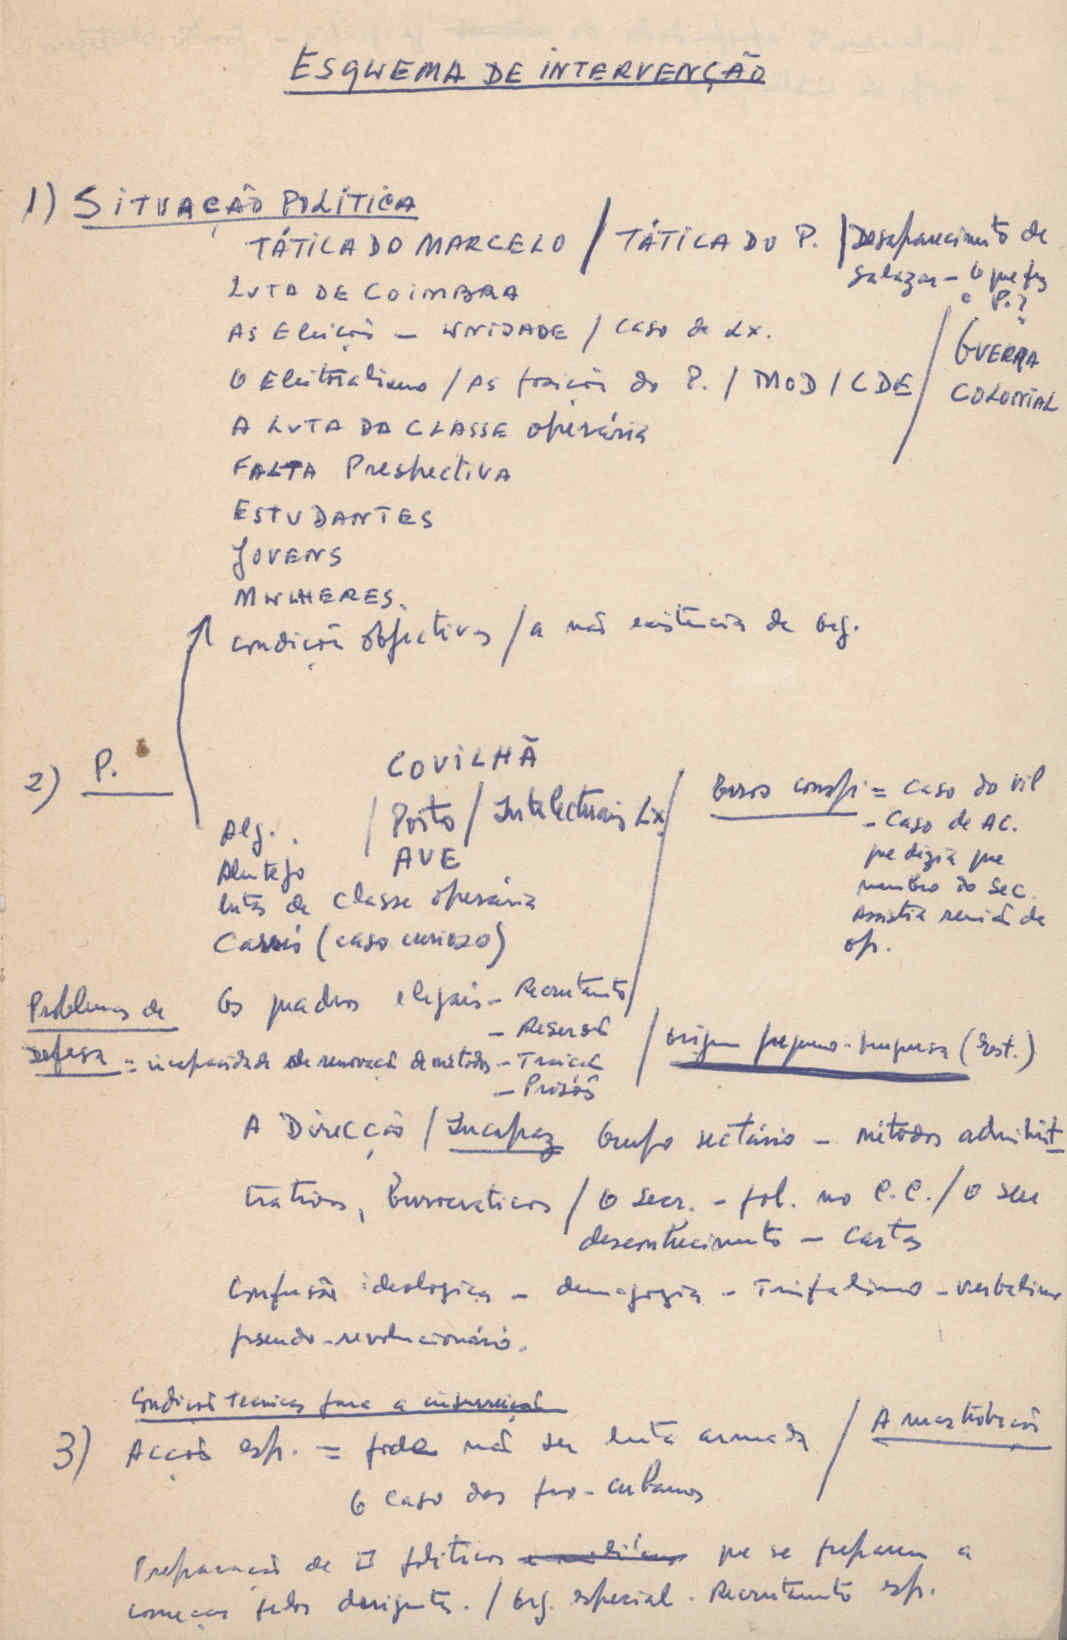 ESQUEMA DE INTERVENÇÃO
1) SITUAÇÃO POLÍTICA
TÁTICA DO MARCELO / TÁTICA DO P. / Desaparecimento de
Salazar - O que fez
o P.?
LUTA DE COIMBRA
AS Eleições - UNIDADE / Caso de Lx.
O Eleitoralismo / As posições do P. / MOD / CDE / GUERRA
COLONIAL
A LUTA DA CLASSE operária
FALTA Prespectiva
ESTUDANTES
JOVENS
MULHERES.
condições objectivas / a não existência de org.
2) P.
COVILHÃ
Alg. / Porto / Intelectuais Lx /
Alentejo AVE
lutas da classe operária
Carris (caso curioso)
Buros conspi = Caso do Vil
- Caso de AC.
que dizia que
membro do Sec.
Assistia reunião de
op.
Problemas de
Defesa = incapacidade de renovação de métodos
Os quadros ilegais - Recrutamento
- Reserva
- Traição
- Prisões
/ origem pequeno-burguesa (Est.)
A Direcção / Incapaz Grupo sectário - métodos administ
trativos, burocraticos / O Secr. - pol. no C.C. / O seu
desconhecimento - Cartas
Confusão ideologica - demagogia - Triufalismo - verbalismo
pseudo-revolucionário.
Condições tecnicas para a insurreição
3) Acções esp. = pode não ser luta armada / A mastrobação
O caso dos pro-cubanos
Preparação de políticos que se preparem a
começar pelos dirigentes. / Org. especial. Recrutamento esp.